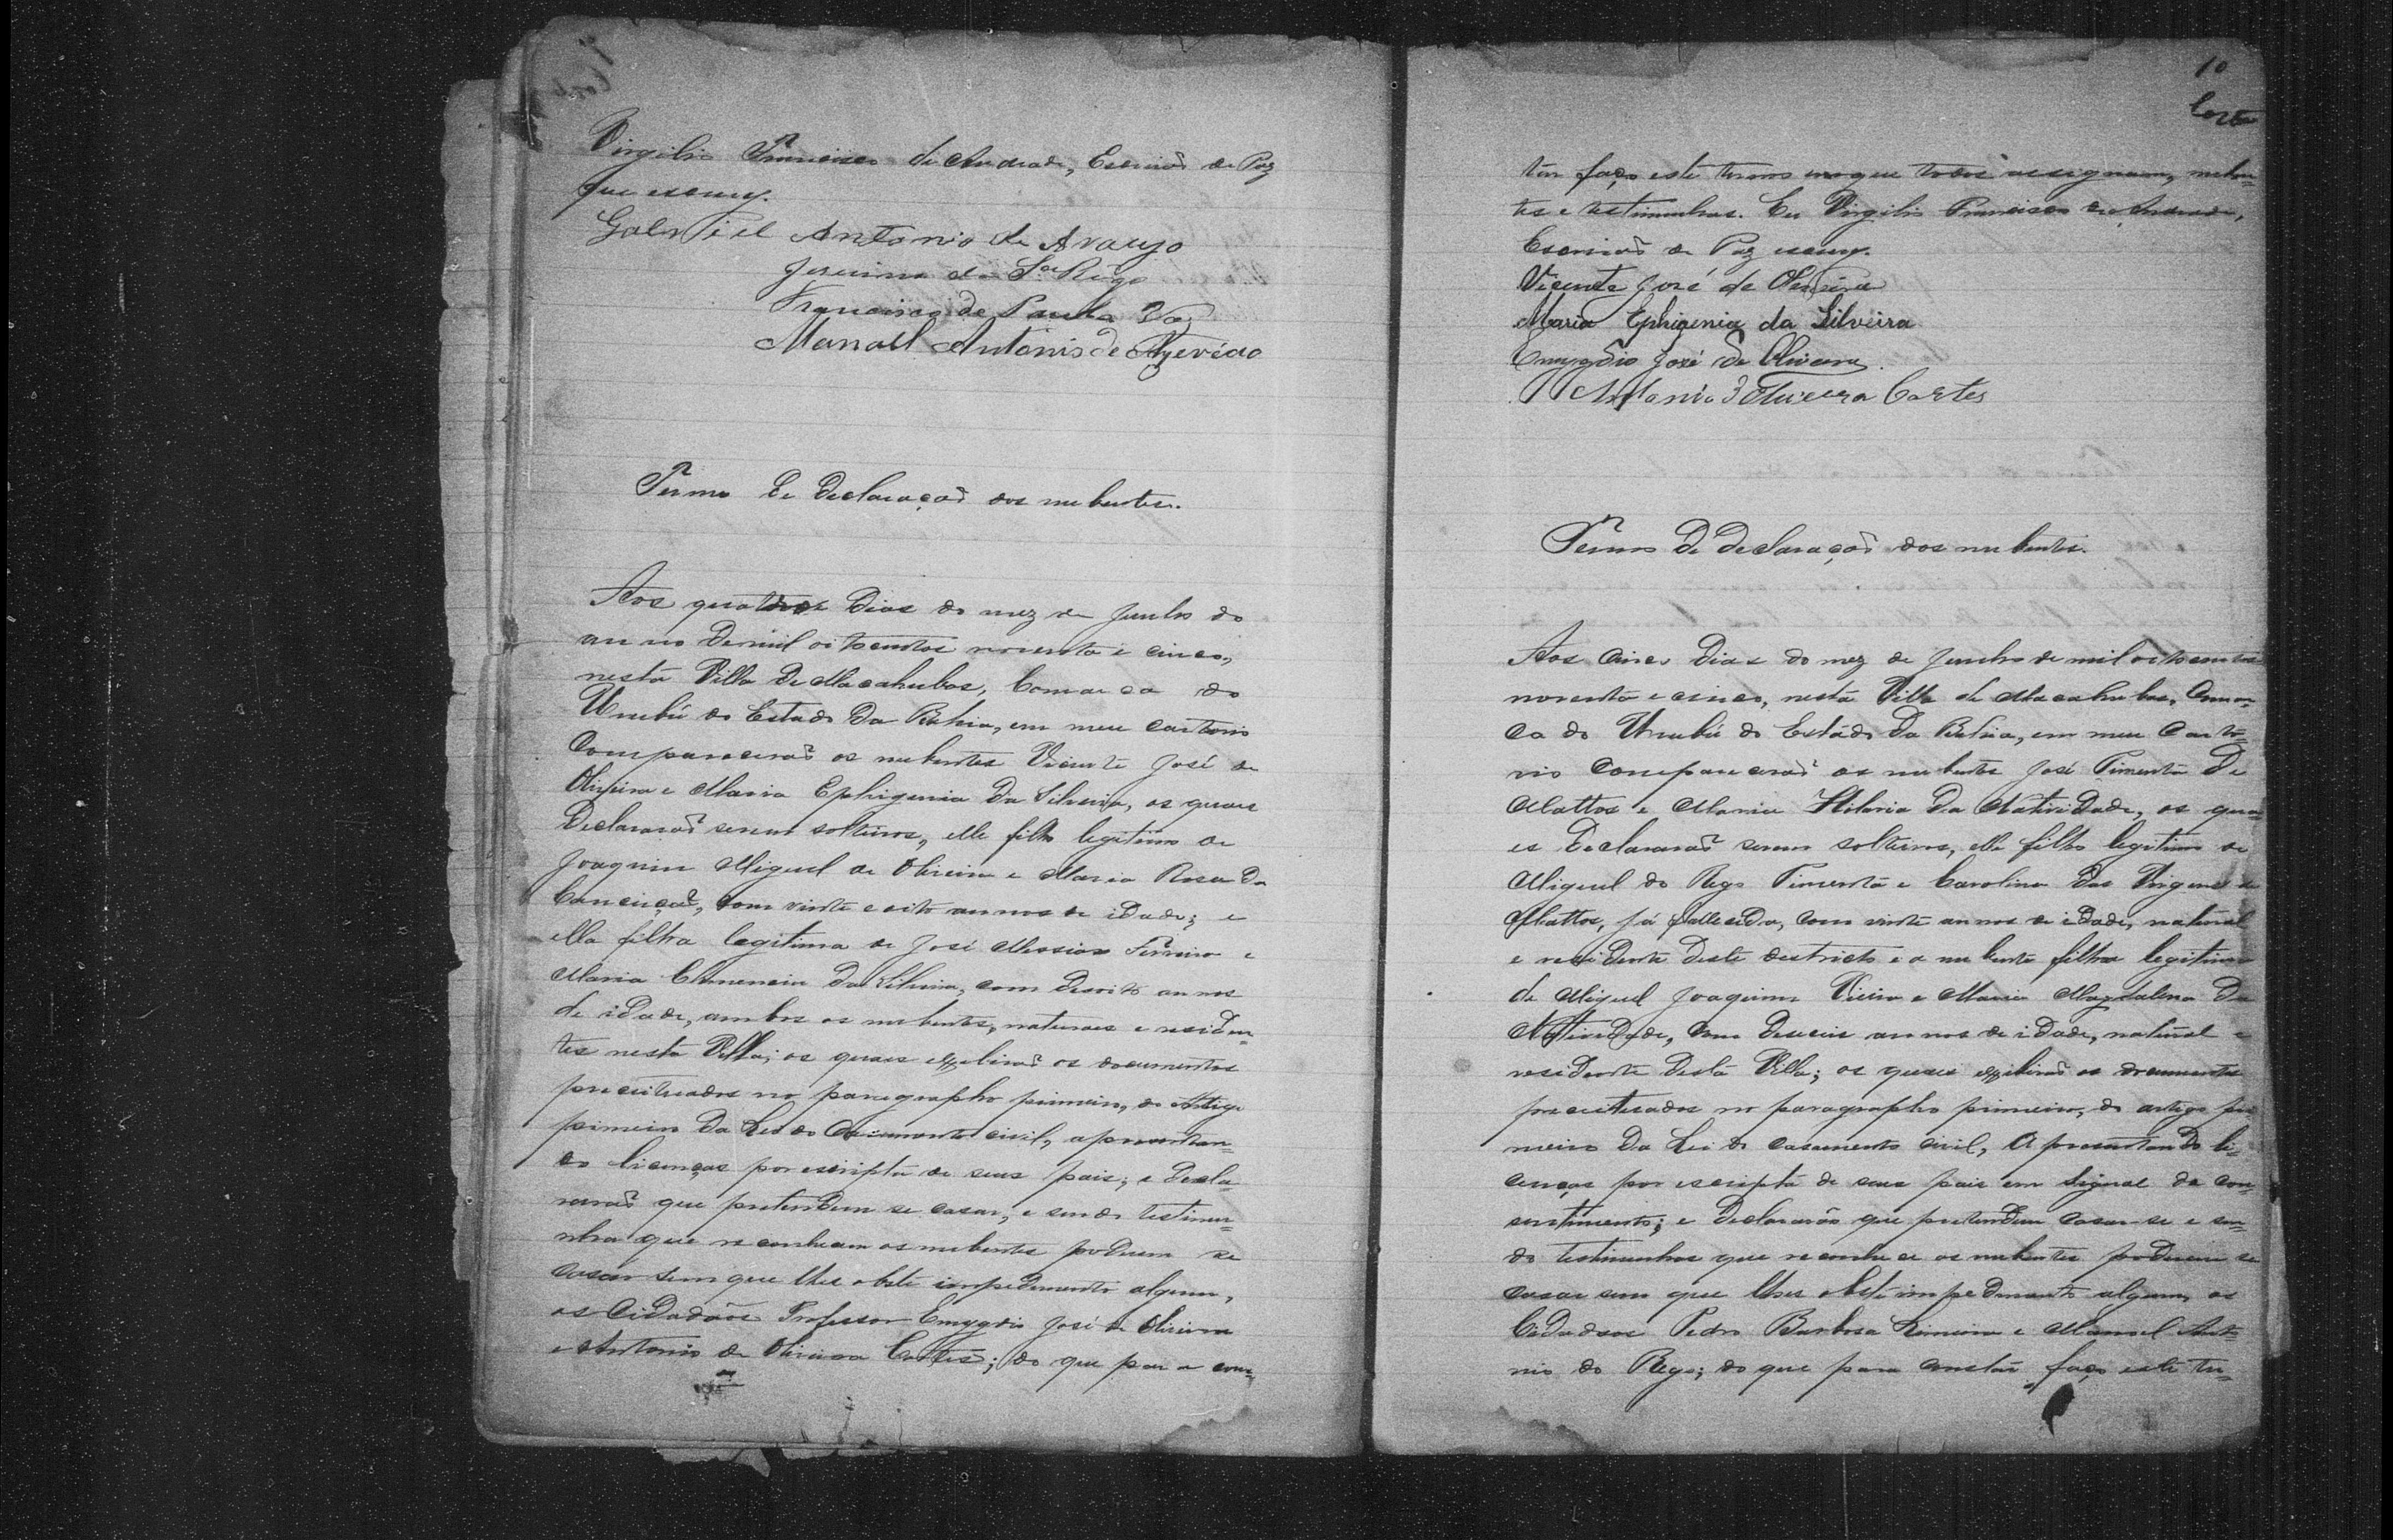 Virgilio Francisco de Andrade, Escrivaõ de Paz
que escrevy.
Gabriel Antonio de Araujo
Jeronimo da Sª Rêgo
Francisco de Paula Vaz
Manoel Antonio de Azevedo
Termo de Declaraçaõ dos nubentes.
Aos quatorze dias do mez de Junho do
anno de mil oitocentos noventa e cinco,
nesta Villa de Macahubas, Comarca do
Urubú do Estado da Bahia, em meu cartorio
Compareceraõ os nubentes Vicente José de
Oliveira e Maria Ephigenia da Silveira, os quaes
Declararaõ serem solteiros, elle filho legitimo de
Joaquim Miguel de Oliveira e Maria Rosa da
Conceiçaõ, com vinte e oito annos de idade; e
ella filha legitima de José Messias Ferreira e
Maria Clemencia da Silveira, com desoito annos
de idade, ambos os nubentes, naturaes e residen-
tes nesta Villa; os quaes exhibiraõ os documentos
preceituados no paragrapho primeiro, do Artigo
primeiro da Lei do Casamento civil, apresentan-
do licenças por escripta de seus pais; e decla-
raraõ que pretendem se casar, e sendo testimu-
nhas que reconhecem os nubentes poderem se
casar sem que lhes obste impedimento algum,
os Cidadãos Professor Emygdio José de Oliveira
e Antonio de Oliveira Cortes; do que para cons-
10
Costa
tar faço este termo em que todos assignam, nuben-
tes e testimunhas. Eu Virgilio Francisco de Andrade,
Escrivaõ de Paz escrevy.
Vicente José de Oliveira
Maria Ephigenia da Silveira
Emygdio José de Oliveira.
Antonio d Oliveira Cortes
Termo de Declaraçaõ dos nubentes.
Aos cinco dias do mez de Junho de mil oitocentos
noventa e cinco, nesta Villa de Macahubas, Comar-
ca do Urubú do Estádo da Bahia, em meu Carto-
rio Compareceraõ os nubentes José Pimenta de
Mattos e Maria Hilaria da Natividade, os qua-
es Declararaõ serem solteiros, elle filho legitimo de
Miguel do Rego Pimenta e Carolina das Virgens de
Mattos, já fallecida, com vinte annos de idade, natural
e residente deste destricto e a nubente filha legitima
de Miguel Joaquim Vieira e Maria Magdalena da
Natividade, com deseseis annos de idade, natural e
residente desta Villa; os quaes exhibiraõ os documentos
preceituados no paragrapho primeiro, do artigo pri-
meiro da Lei do casamento civil, Apresentando li-
cenças por escripta de seus pais em signal de con-
sentimento; e Declararão que pretendem casar-se e sen-
do testimunhas que reconhece os nubentes poderem se
casar sem que lhes obste impedimento algum, os
Cidadãos Pedro Barbosa Limeira e Manoel Anto-
nio do Rego; do que para constár faço este ter-